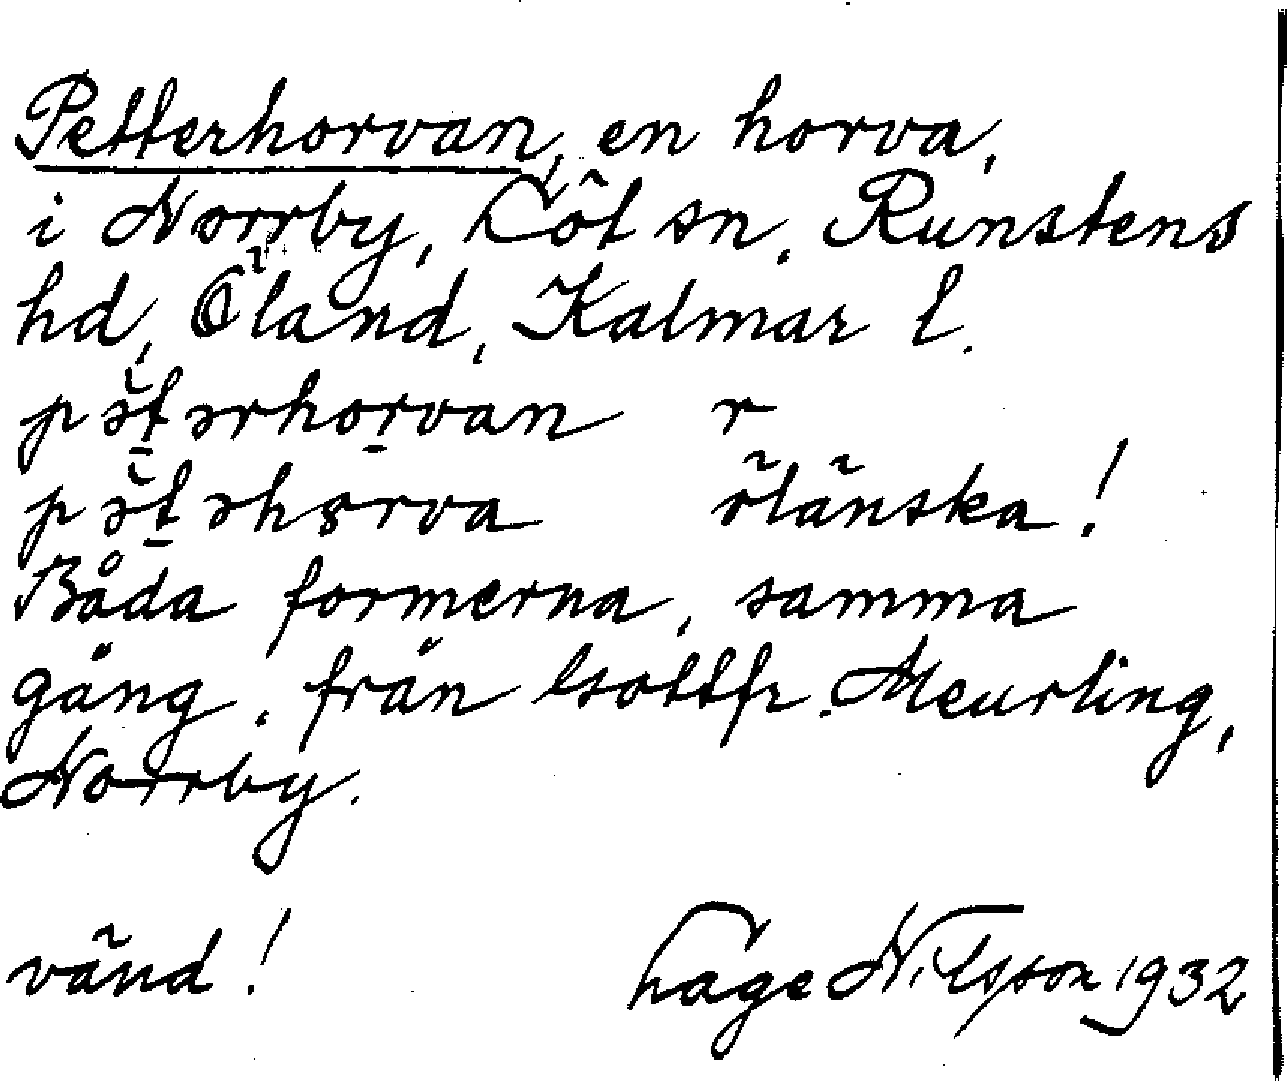 Petterhorvan, en horva,
i Norrby, Löt sn, Runstens
hd, Öland, Kalmar l.
pətərhorvan r
pətəhorva öländska!
Båda formerna, samma
gång, från Gottfr. Meurling,
Norrby.
vänd! Hage Nilsson 1932